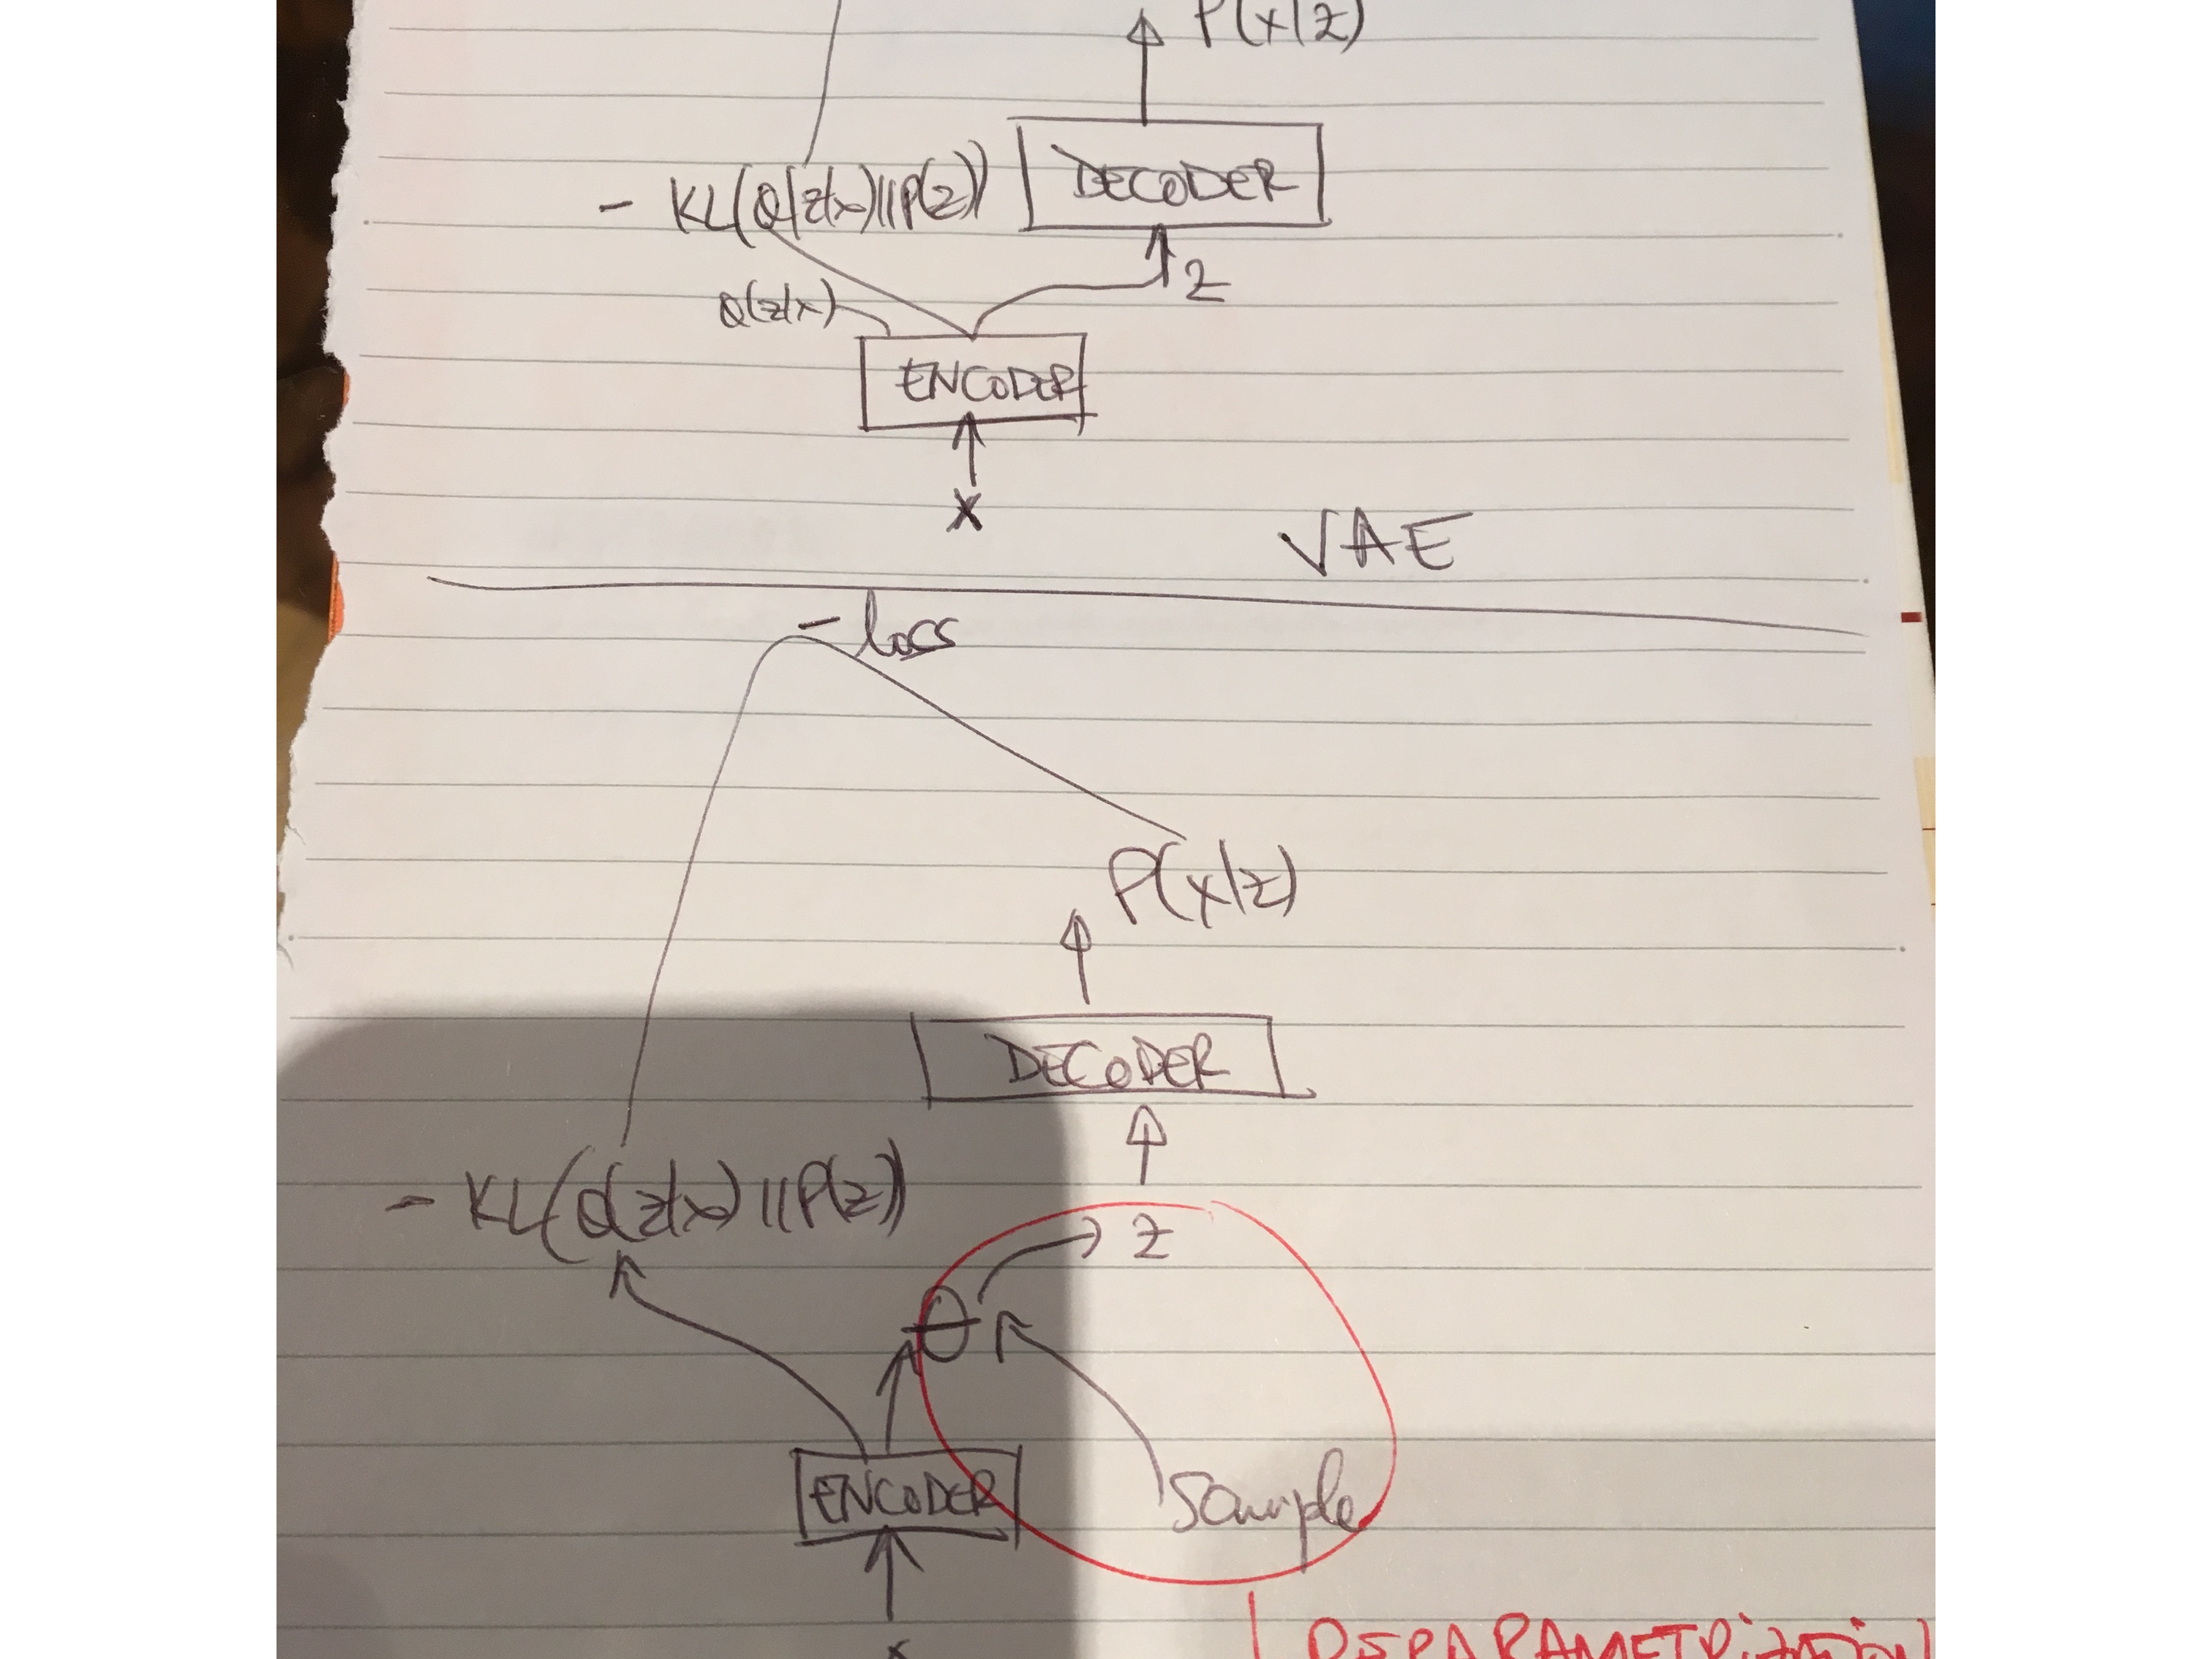 P(x|z)
DECODER
- KL(Q(z|x)||P(z))
z
Q(z|x)
ENCODER
x
VAE
- loss
P(x|z)
DECODER
- KL(Q(z|x)||P(z))
z
θ
ENCODER
Sample
x
REPARAMETRIZATION